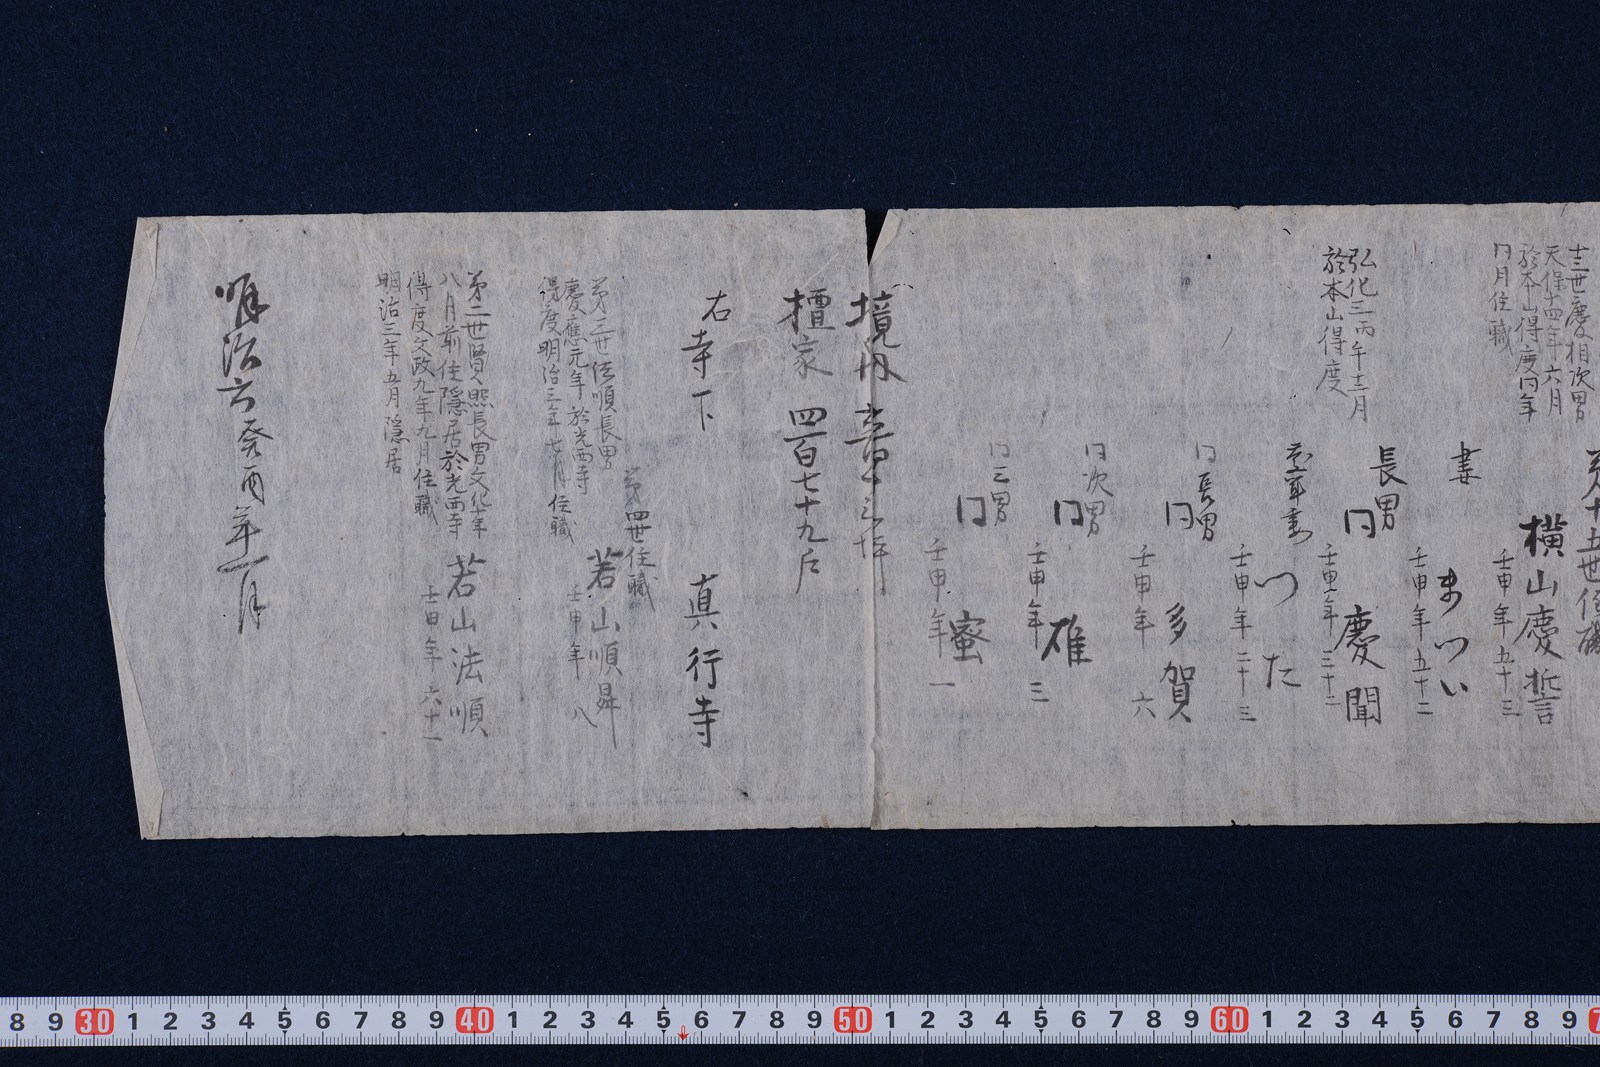 十三世慶相次男
天保十四年六月
於本山得度同年
同月住職
第十五世住職
横山慶誓
壬申年五十三
妻
まつい
壬申年五十二
弘化三丙午十二月
於本山得度
長男
同 慶聞
壬申年三十二
つた
壬申年二十三
同長男
同 多賀
壬申年六
同次男
同 雄
壬申年三
同三男
同 蜜
壬申年一
境内
檀家 四百七十九戸
右寺下
真行寺
第四世住職
第三世法順長男
慶應元年於光西寺
得度明治三年七月住職
若山順昇
壬申年 八
第二世賢照長男文化十年
八月前住隠居於光西寺
得度文政九年九月住職
明治三年五月隠居
若山法順
壬申年六十一
明治六癸酉年一月